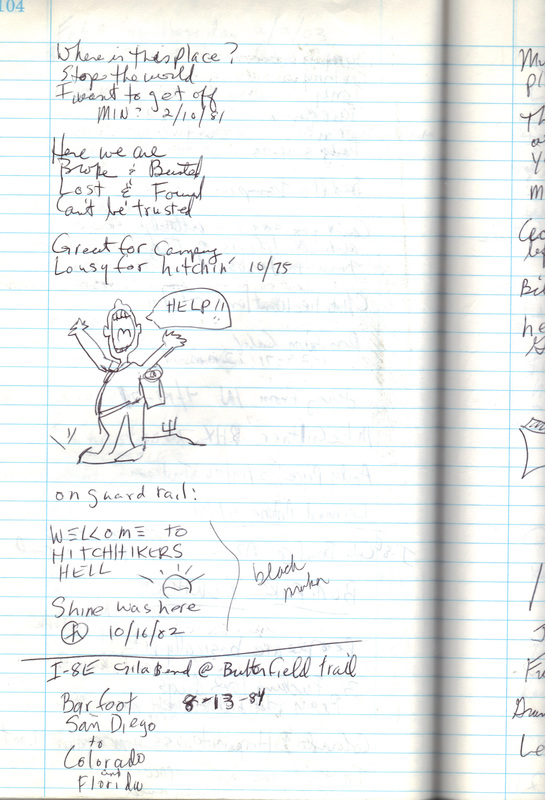 104
Where is this place?
Stop the world
I want to get off
MIN: 2/10/81
Here we are
Broke & Busted
Lost & Found
Can't be trusted
Great for Camping
Lousy for hitchin' 10/75
HELP!!
on guard rail:
WELCOME to
HITCHHIKERS
HELL
black
Shine was here
10/16/82
I-8E Gila Bend @ Butterfield Trail
Barfoot 8-13-84
San Diego
to
Colorado
and
Florida